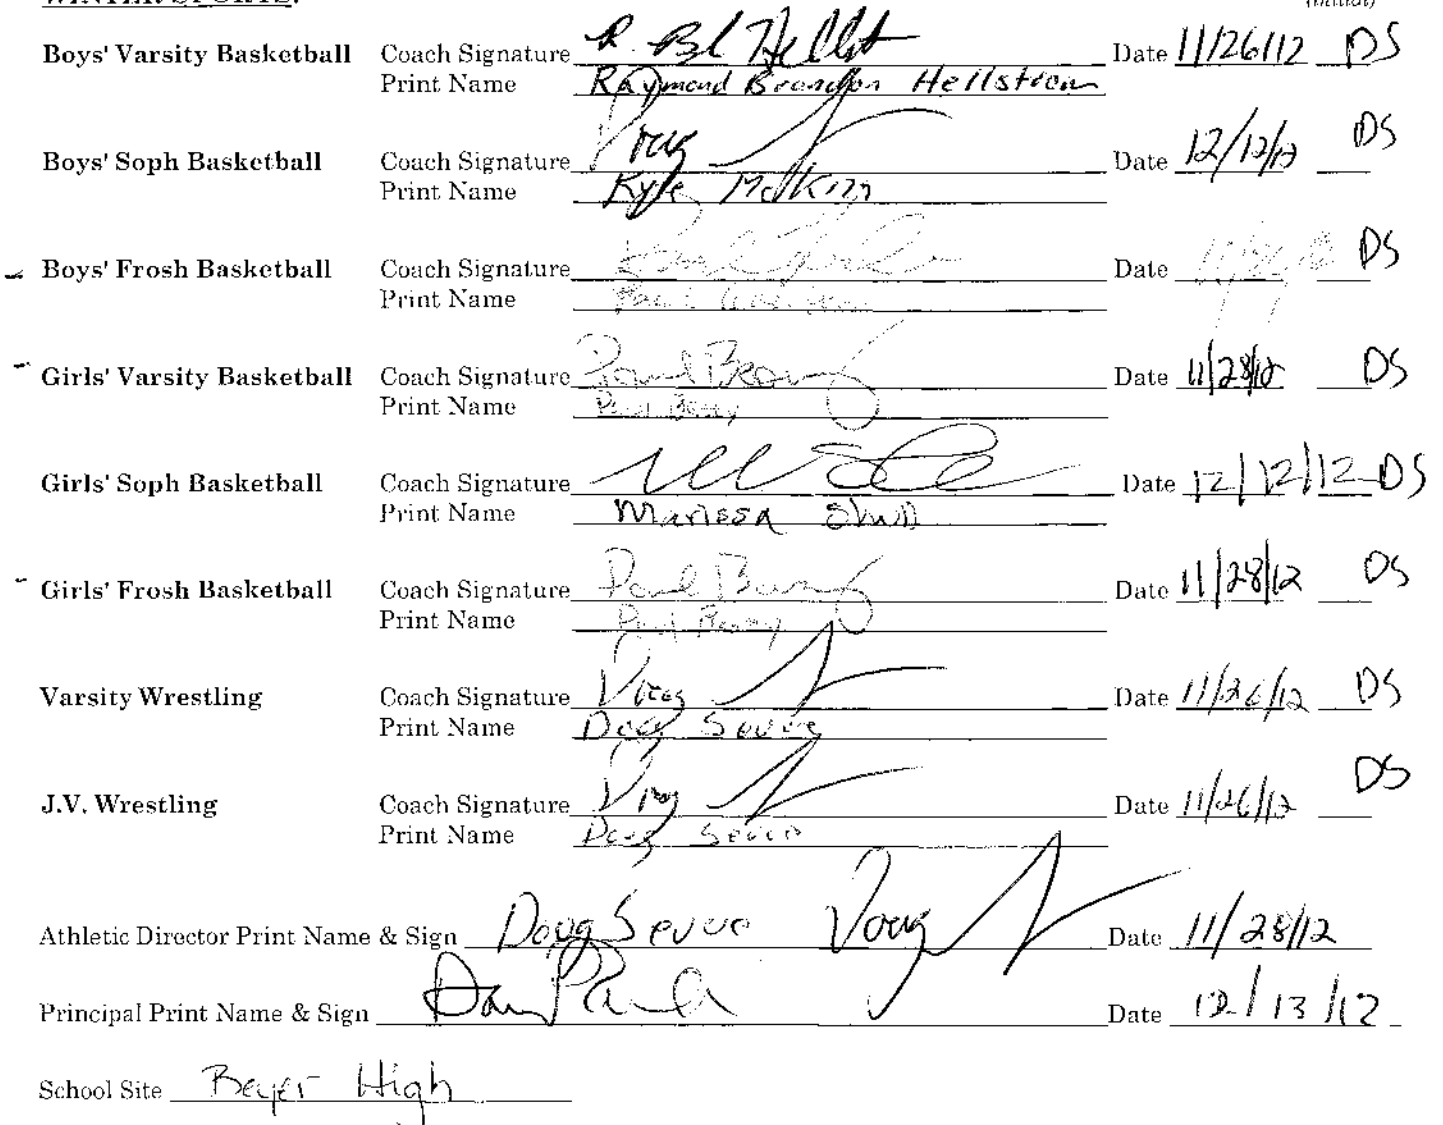 WINTER SPORTS:
(initial)
Boys' Varsity Basketball Coach Signature Date 11/26/12 DS
Print Name Raymond Brandon Hellstrom
Boys' Soph Basketball Coach Signature Doug Date 12/12/12 DS
Print Name Kyle
Boys' Frosh Basketball Coach Signature Date DS
Print Name Paul
Girls' Varsity Basketball Coach Signature Paul Date 11/28/12 DS
Print Name Paul
Girls' Soph Basketball Coach Signature Date 12/12/12 DS
Print Name Marissa
Girls' Frosh Basketball Coach Signature Paul Date 11/28/12 DS
Print Name Paul
Varsity Wrestling Coach Signature Doug Date 11/26/12 DS
Print Name Doug Severo
J.V. Wrestling Coach Signature Doug Date 11/26/12 DS
Print Name Doug Severo
Athletic Director Print Name & Sign Doug Severo Doug Date 11/28/12
Principal Print Name & Sign Dan Park Date 12/13/12
School Site Beyer High